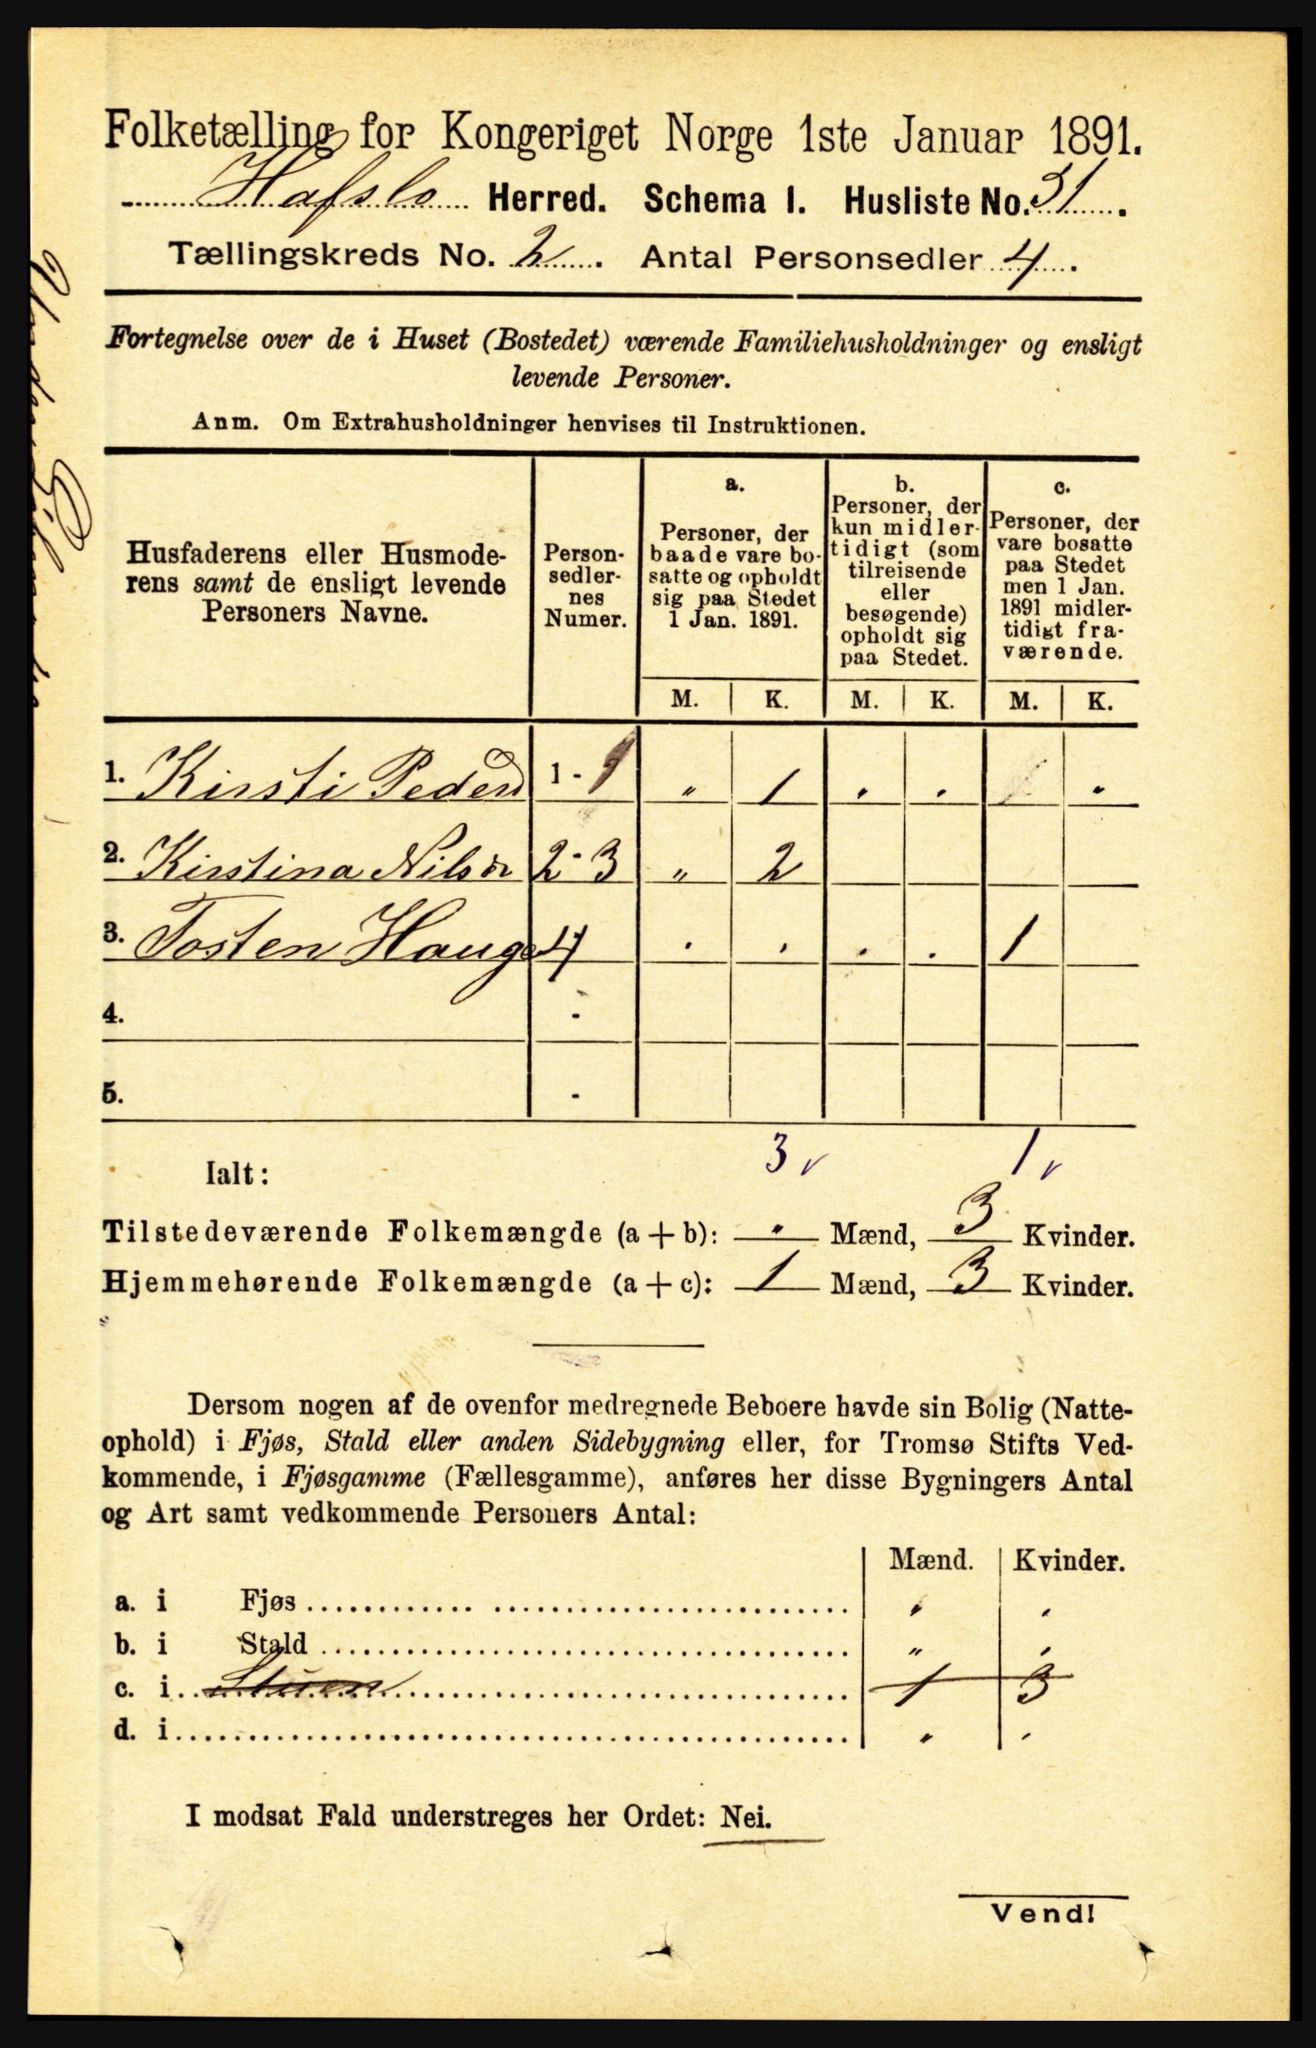 Folketælling for Kongeriget Norge 1ste Januar 1891.
Hafslo Herred. Schema I. Husliste No. 31.
Tællingskreds No. 2. Antal Personsedler 4.
Fortegnelse over de i Huset (Bostedet) værende Familiehusholdninger og ensligt
levende Personer.
Anm. Om Extrahusholdninger henvises til Instruktionen.
Husfaderens eller Husmode-
rens samt de ensligt levende
Personers Navne.
Person-
sedler-
nes
Numer.
a.
Personer, der
baade vare bo-
satte og opholdt
sig paa Stedet
1 Jan. 1891.
b.
Personer, der
kun midler-
tidigt (som
tilreisende
eller
besøgende)
opholdt sig
paa Stedet.
c.
Personer, der
vare bosatte
paa Stedet
men 1 Jan.
1891 midler-
tidigt fra-
værende.
M. K. M. K. M. K.
1. Kirsti Pedersd 1 - „ 1 . . .
2. Kirstina Nilsdr 2 - 3 „ 2
3. Tosten Hauge 4 . . . . 1
4. -
5. -
Ialt: 3 v 1 v
Tilstedeværende Folkemængde (a + b): . Mænd, 3 Kvinder.
Hjemmehørende Folkemængde (a + c): 1 Mænd, 3 Kvinder.
Dersom nogen af de ovenfor medregnede Beboere havde sin Bolig (Natte-
ophold) i Fjøs, Stald eller anden Sidebygning eller, for Tromsø Stifts Ved-
kommende, i Fjøsgamme (Fællesgamme), anføres her disse Bygningers Antal
og Art samt vedkommende Personers Antal:
Mænd. Kvinder.
a. i Fjøs „ .
b. i Stald „ .
c. i Stuen 1 3
d. i „ .
I modsat Fald understreges her Ordet: Nei.
Vend!